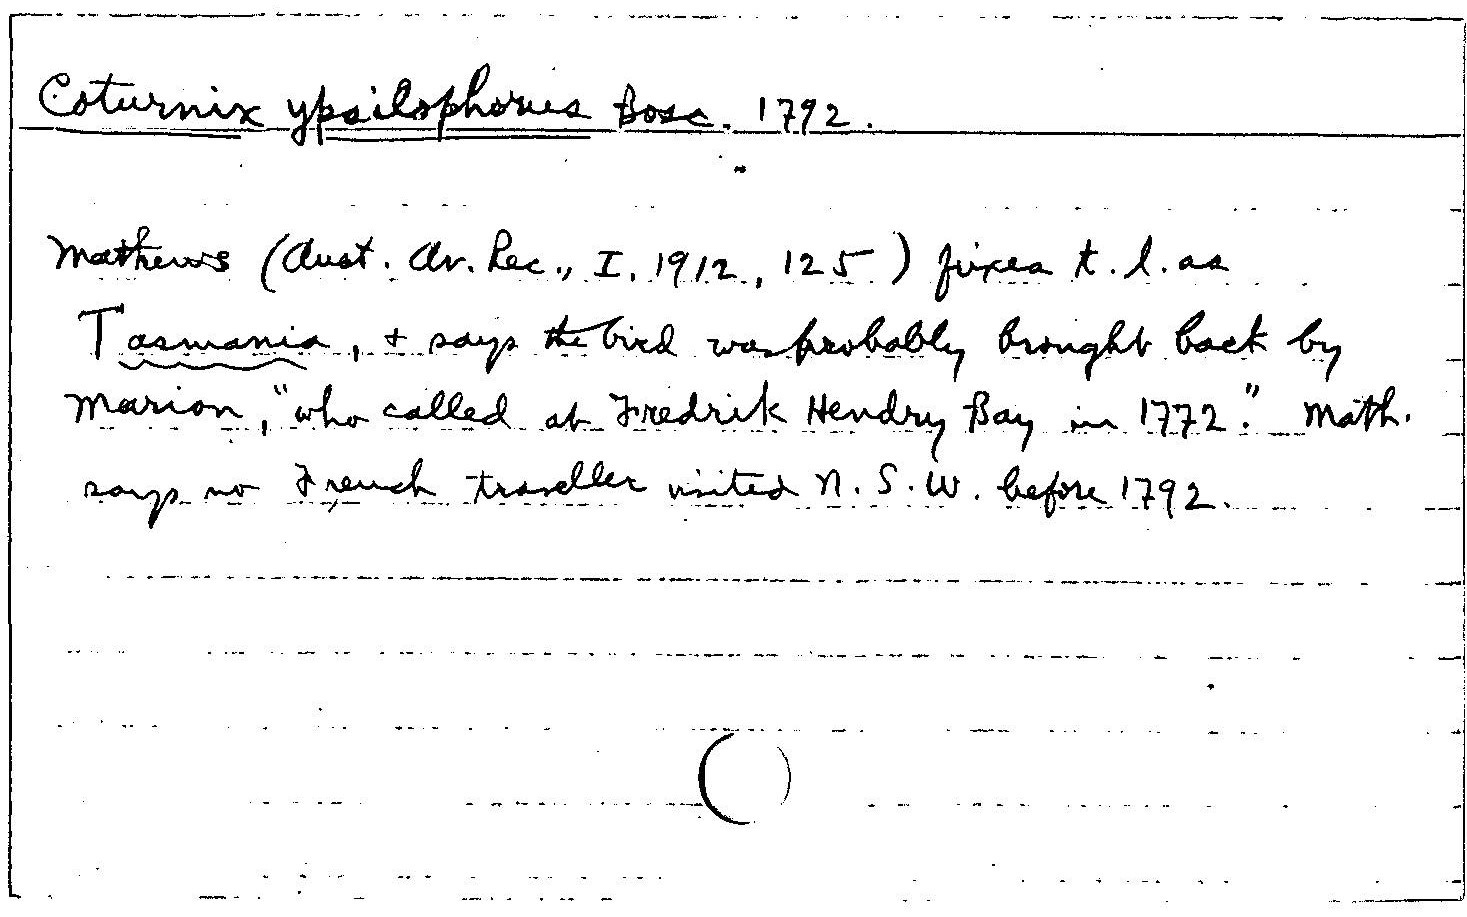 Coturnix ypsilophorus Bosc. 1792.
Mathews (Aust. Av. Rec., I, 1912, 125) fixes t.l. as
Tasmania, + says the bird was probably brought back by
Marion, "who called at Fredrik Hendry Bay in 1772." Math.
says no French traveller visited N.S.W. before 1792.